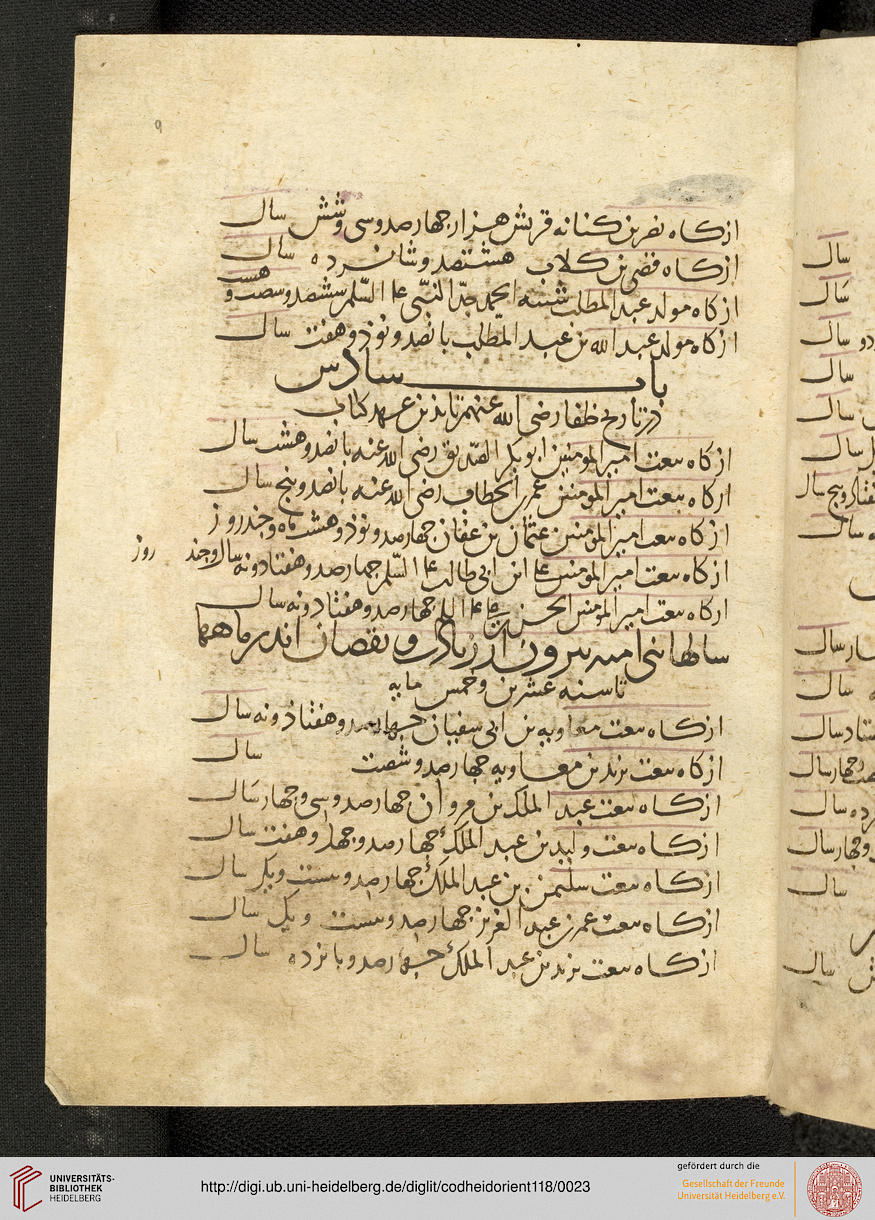 از کاه نضر بن کنانه قریش هزار جهارصد و سی و شش سال
از کاه قصی بن کلاب هشتصد و شانزده سال
از کاه مولد عبد المطلب شیبه الحمد جدّ النبّی ع م السّلم ششصد و شصت و هشت
از کاه مولد عبد الله بن عبد المطلب بانصد و نوذ و هفت سال
باب سادس
در تاریخ خلفا رضی الله عنهم تا بذین عهد کتاب
از کاه بیعت امیر المومنین ابو بکر الصّدیق رضی الله عنه بانصد و هشت سال
از کاه بیعت امیر المومنین عمر بن الخطاب رضی الله عنه بانصد و بنج سال
از کاه بیعت امیر المومنین عثمان بن عفان جهارصد و نوذ و هشت ماه و جند روز
از کاه بیعت امیر المومنین علی ابن ابی طالب ع م السّلم جهارصد و هفتاد و نه سال و جند روز
از کاه بیعت امیر المومنین الحسن بن علی جهارصد و هفتاد و نه سال
سالهاء بنی امیه بیرون از زیادت و نقصان اندر ماهها
تا سنه عشرین و خمس مایه
از کاه بیعت معاویه بن ابی سفیان جهارصد و هفتاذ و نه سال
از کاه بیعت یزید بن معاویه جهارصد و شصت سال
از کاه بیعت عبد الملک بن مروان جهارصد و سی و جهار سال
از کاه بیعت ولید بن عبد الملک جهارصد و جهل و هفت سال
از کاه بیعت سلیمن بن عبد الملک جهارصد و بیست و یک سال
از کاه بیعت عمر بن عبد العزیز جهارصد و بیست و یک سال
از کاه بیعت یزید بن عبد الملک جهارصد و بانزده سال
سال
سال
سال
سال
سال
سال
سال
سال
سال
سال
سال
جهار سال
سال
و جهار سال
سال
سال
UNIVERSITÄTS-
BIBLIOTHEK
HEIDELBERG
http://digi.ub.uni-heidelberg.de/diglit/codheidorient118/0023
gefördert durch die
Gesellschaft der Freunde
Universität Heidelberg e.V.